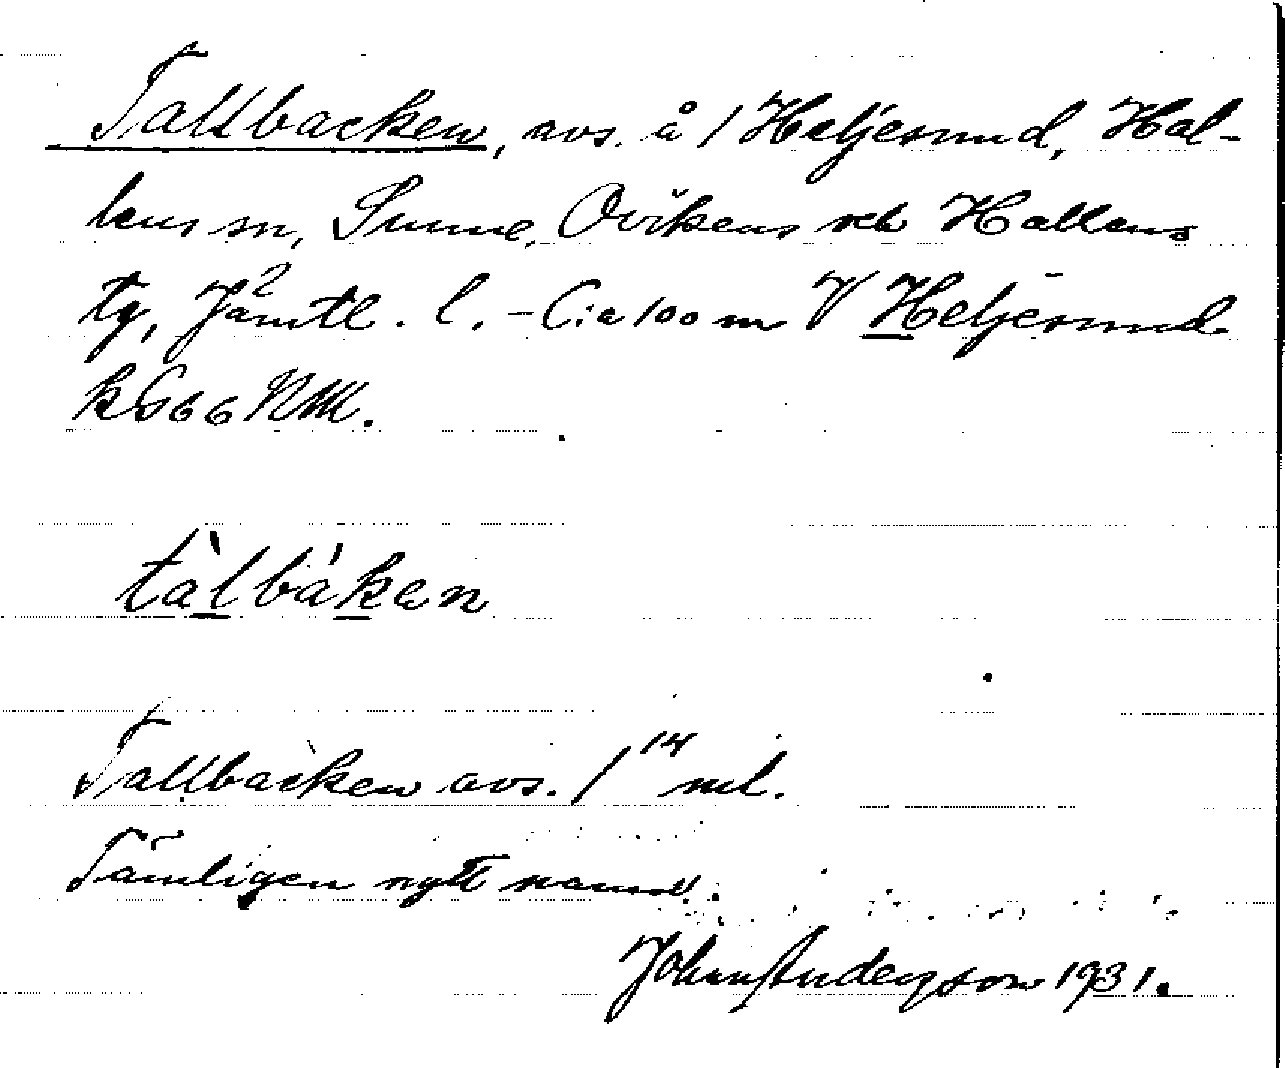 Tallbacken, avs. å 1 Heljesund, Hal-
lens sn, Sunne, Ovikens och Hallens
tg, Jämtl. l. – C:a 100 m V Heljesund
k G66 NM.
tàlbáken
Tallbacken avs. 1¹⁴ ml.
Tämligen nytt namn.
Johan Anderson 1931.